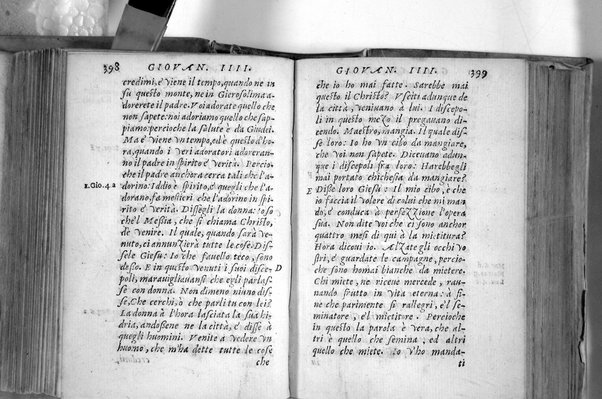 398 GIOVAN. IIII.
credimi, è viene il tempo, quando ne in
su questo monte, ne in Gierosolima a-
dorerete il padre. Voi adorate quello che
non sapete: noi adoriamo quello che sap
piamo: percioche la salute è da Giudei.
Ma è viene vn tempo, ed è questo d'ho
ra, quando i veri adoratori adoreran-
no il padre in spirito è verità. Percio-
che il padre anchora cerca tali che l'a-
1. Gio. 4. a
dorino: Iddio è spirito, è quegli che l'a-
dorano, fa mestieri che l'adorino in spi
rito è verità. Dissegli la donna: io so
ch'el Messia, che si chiama Christo,
dè venire. Il quale, quando sarà ve
nuto, ci annunzierà tutte le cose: Dis-
sele Giesu: Io che fauello teco, sono
desso. E in questo venuti i suoi disce
D
poli, marauigliauansi che egli parlas-
se con donna. Non dimeno niuno dis-
se, Che cerchi, ò che parli tu con lei?
La donna à l'hora lasciata la sua hi-
dria, andossene ne la città, e disse à
quegli huomini. Venite a vedere vn
huomo, che m'ha dette tutte le cose
che
GIOVAN. IIII. 399
che io ho mai fatte. Sarebbe mai
questo il Christo? Vscite adunque de
la città, veniuano à lui. I discepo
li in questo mezo il pregauano di-
cendo. Maestro, mangia. Il quale dis
se loro: Io ho vn cibo da mangiare,
che voi non sapete. Diceuano adun-
que i discepoli fra loro: Harebbegli
mai portato chichessa da mangiare?
E
Disse loro Giesu: Il mio cibo, è che
io faccia il volere di colui che mi man
do, è conduca à persezzione l'opera
sua. Non dite voi che ci sono anchor
quattro mesi di qui à la mititura?
Hora dicoui io. Alzate gli occhi vo
stri, è guardate le campagne, percio
che sono homai bianche da mietere.
Chi miete, ne riceue mercede, rau-
nando frutto in vita eterna: à fi-
ne che parimente si rallegri, e'l se-
minatore, e'l mietitore. Percioche
in questo la parola è vera, che al-
tri è quello che semina, ed altri
quello che miete. Io v'ho manda-
ti